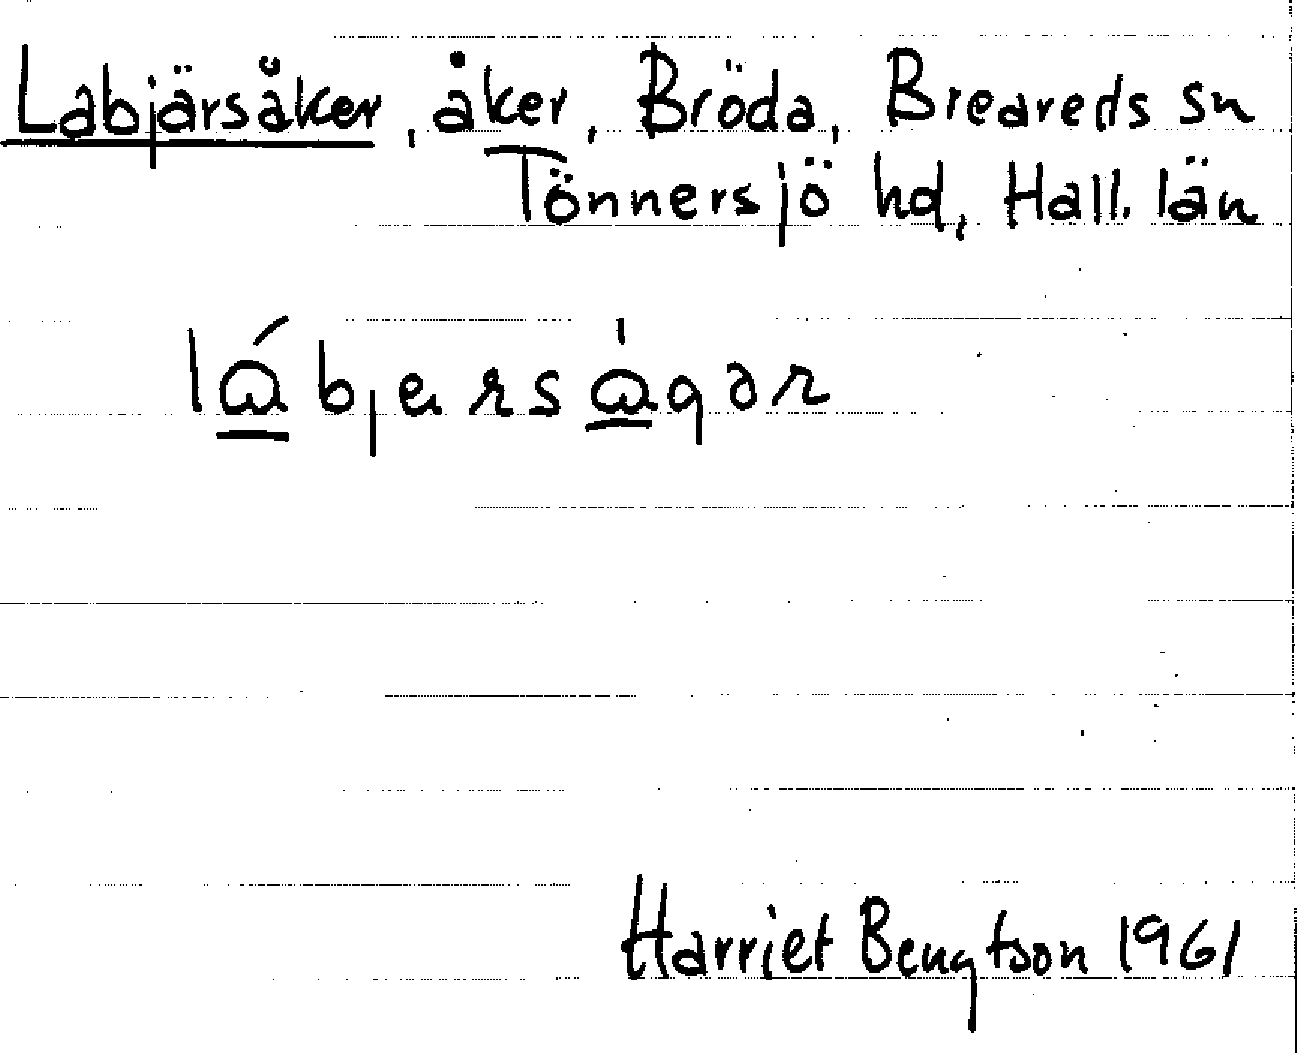 Labjärsåker, åker, Bröda, Breareds sn
Tönnersjö hd, Hall. län
lábjersågər
Harriet Bengtson 1961